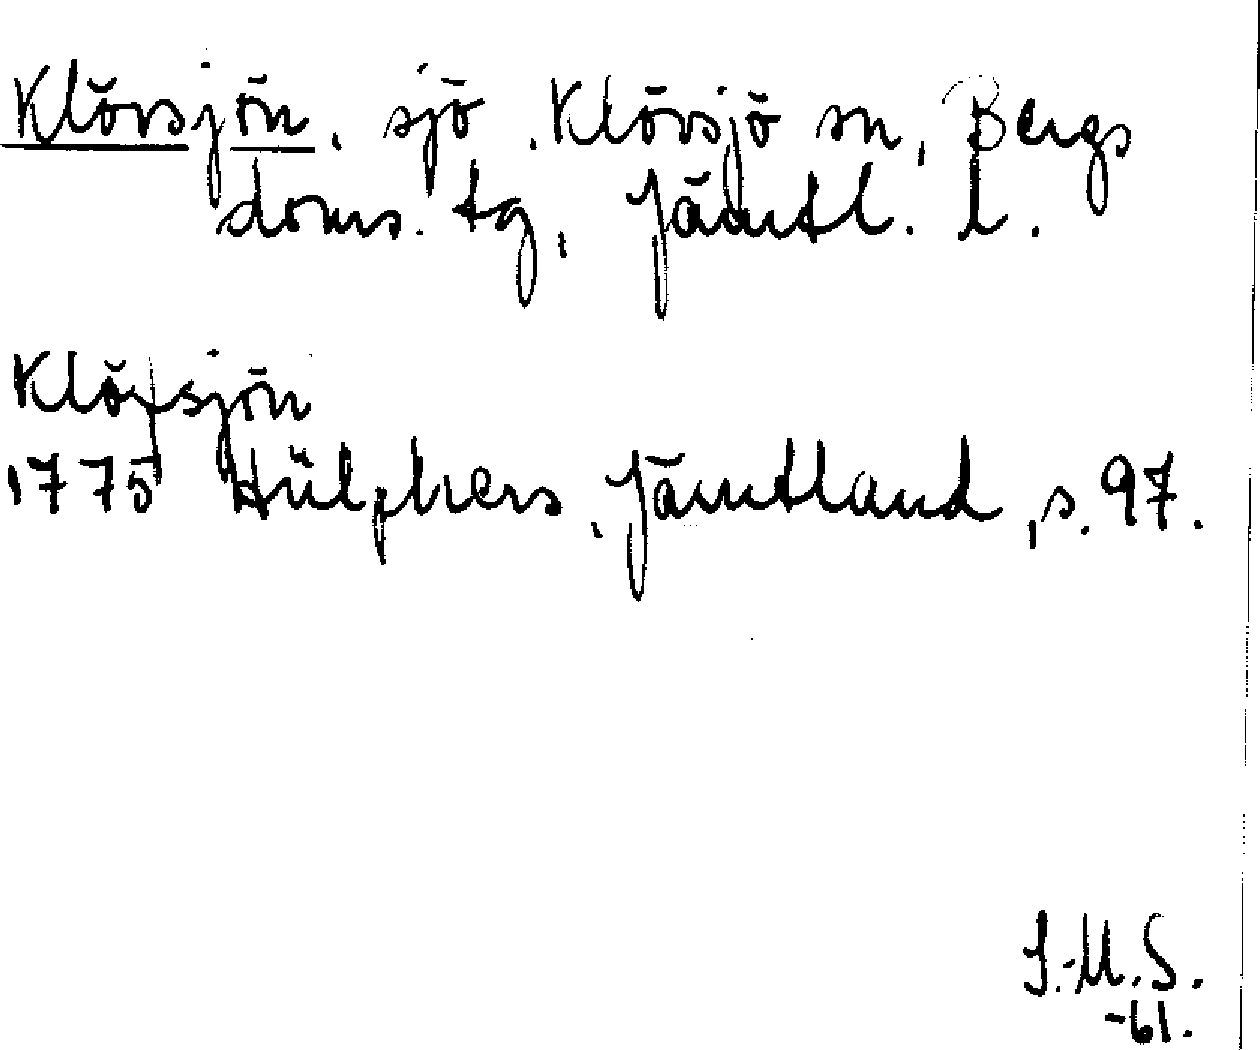 Klövsjön, sjö, Klövsjö sn, Bergs
doms. tg, Jämtl. l.
Klöfsjön
1775 Hülphers, Jämtland, s. 97.
I.-M.S.
-61.